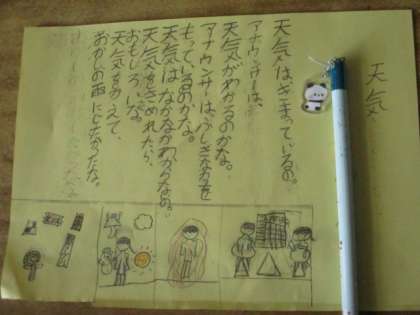 天気
天気は、きまっているの。
アナウンサーは、
天気がわかるのかな。
アナウンサーは、ふしぎな力を
もっているのかな。
天気は、なかなかわからない。
天気をきめれたら、
おもしろいな。
天気をかえて、
おかしの雨にしたかったな。